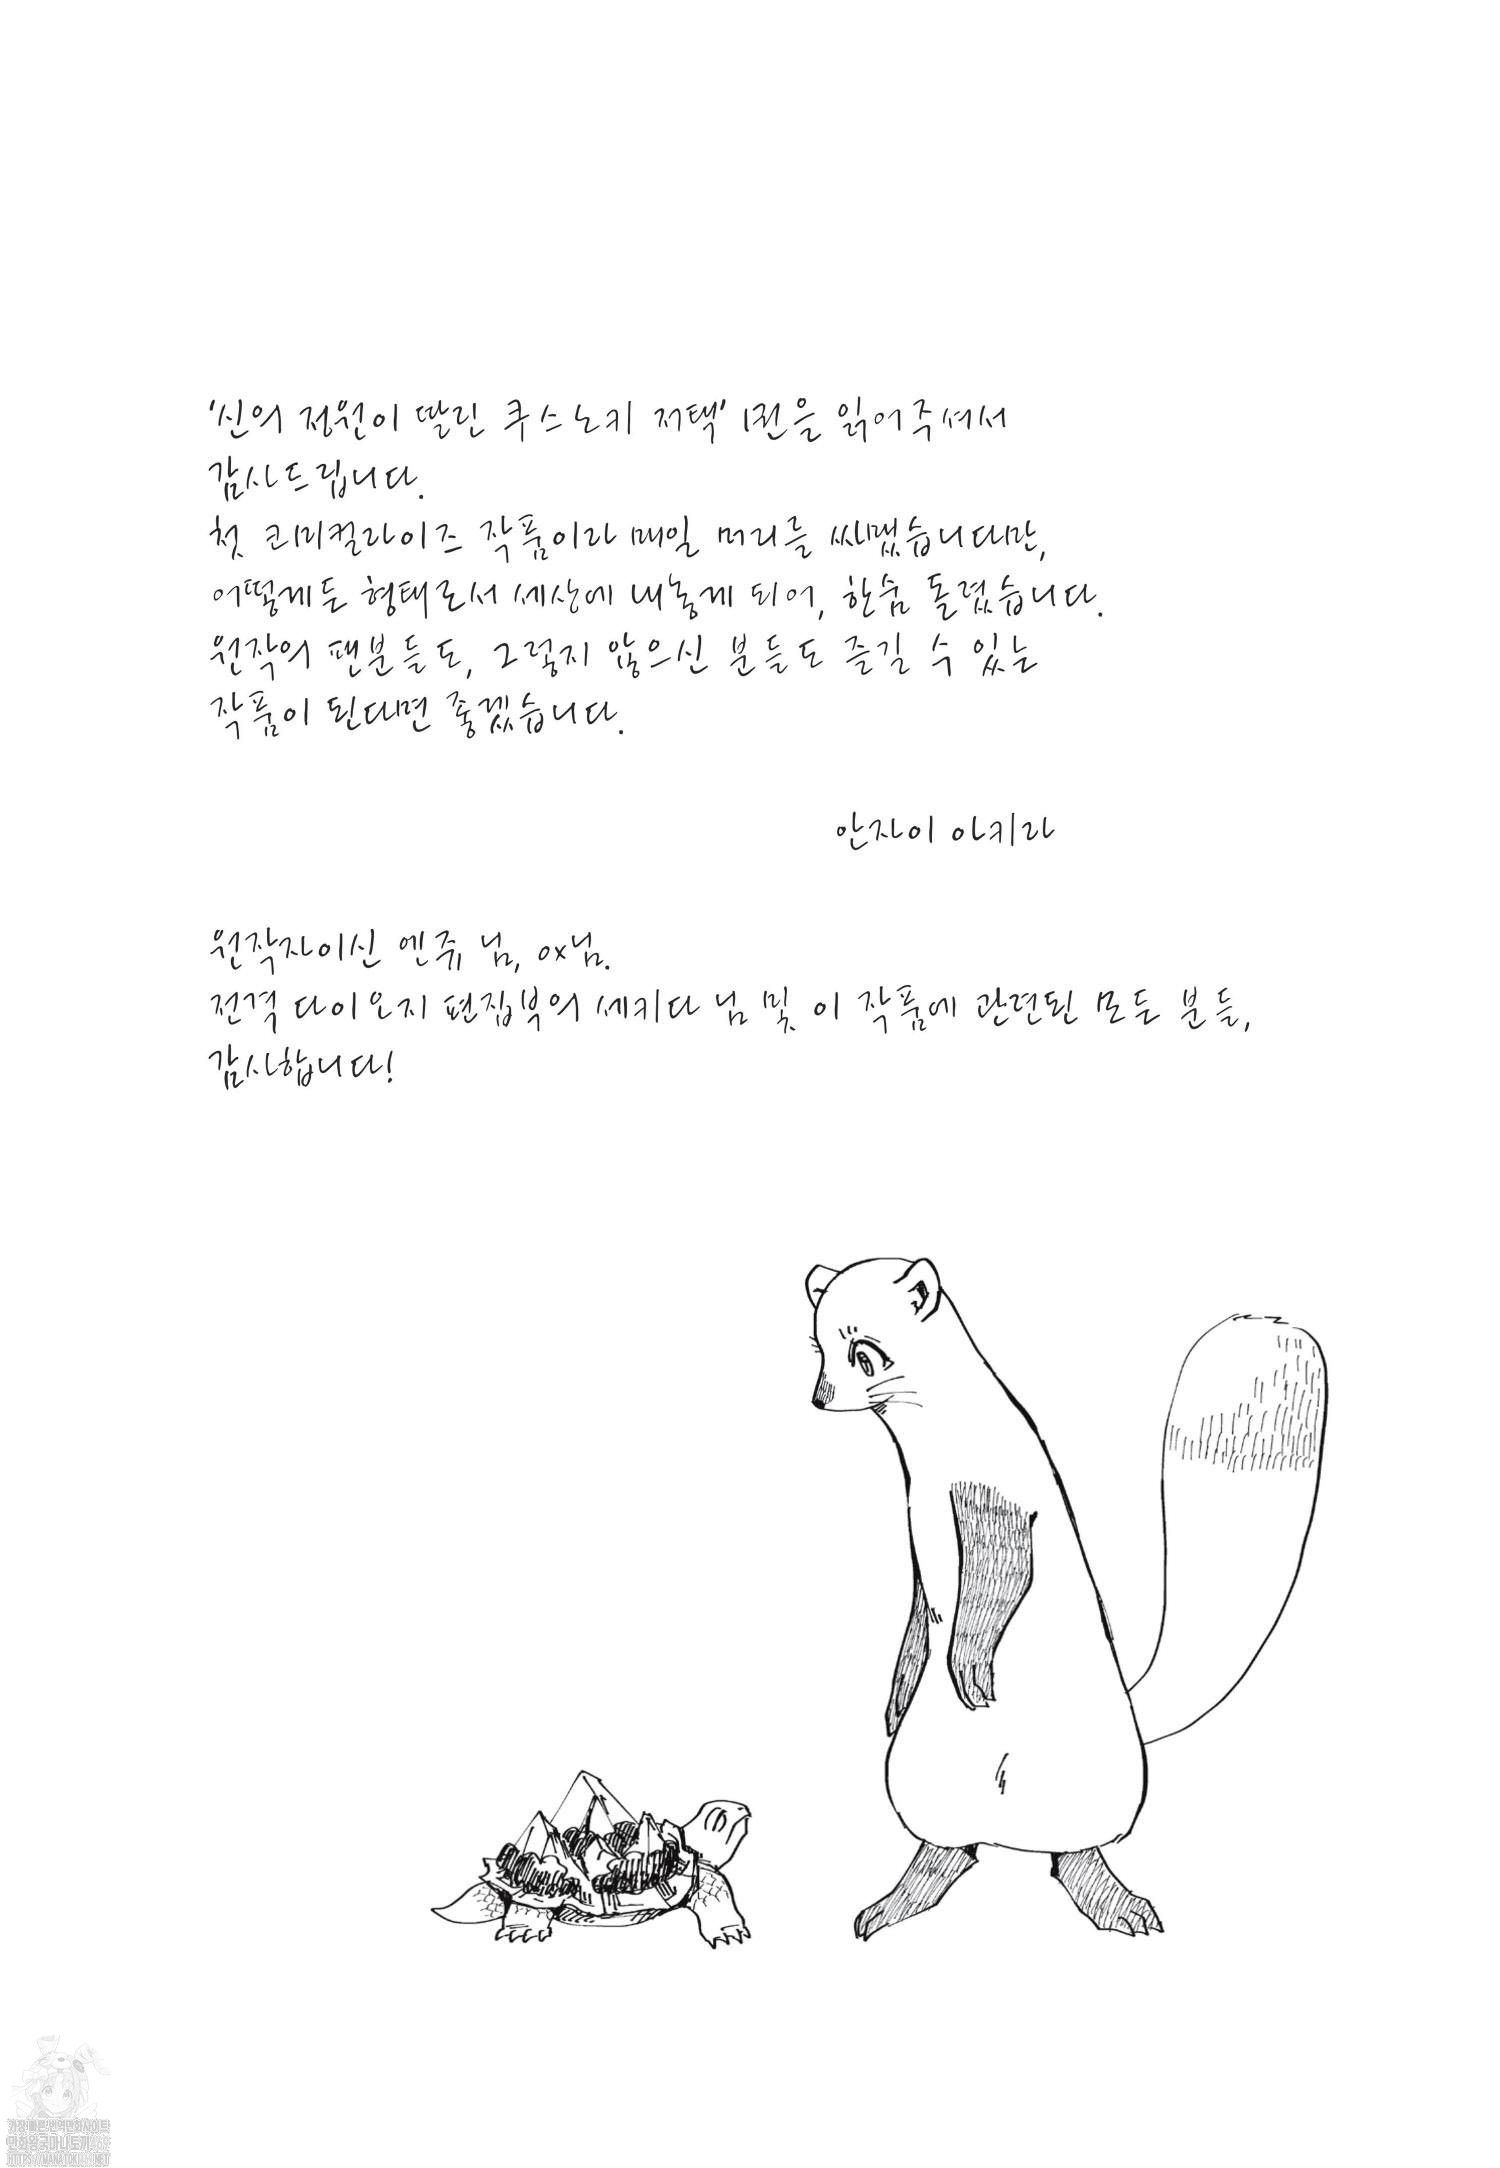 '신의 정원이 딸린 쿠스노키 저택' 1권을 읽어주셔서
감사드립니다.
첫 코미컬라이즈 작품이라 매일 머리를 싸맸습니다만,
어떻게든 형태로서 세상에 내놓게 되어, 한숨 돌렸습니다.
원작의 팬분들도, 그렇지 않으신 분들도 즐길 수 있는
작품이 된다면 좋겠습니다.
안자이 아키라
원작자이신 엔쥬 님, ox님.
전격 다이오지 편집부의 세키다 님 및 이 작품에 관련된 모든 분들,
감사합니다!
가장 빠른 번역만화사이트
만화왕국마나토끼469
HTTPS://MANATOKI469.NET